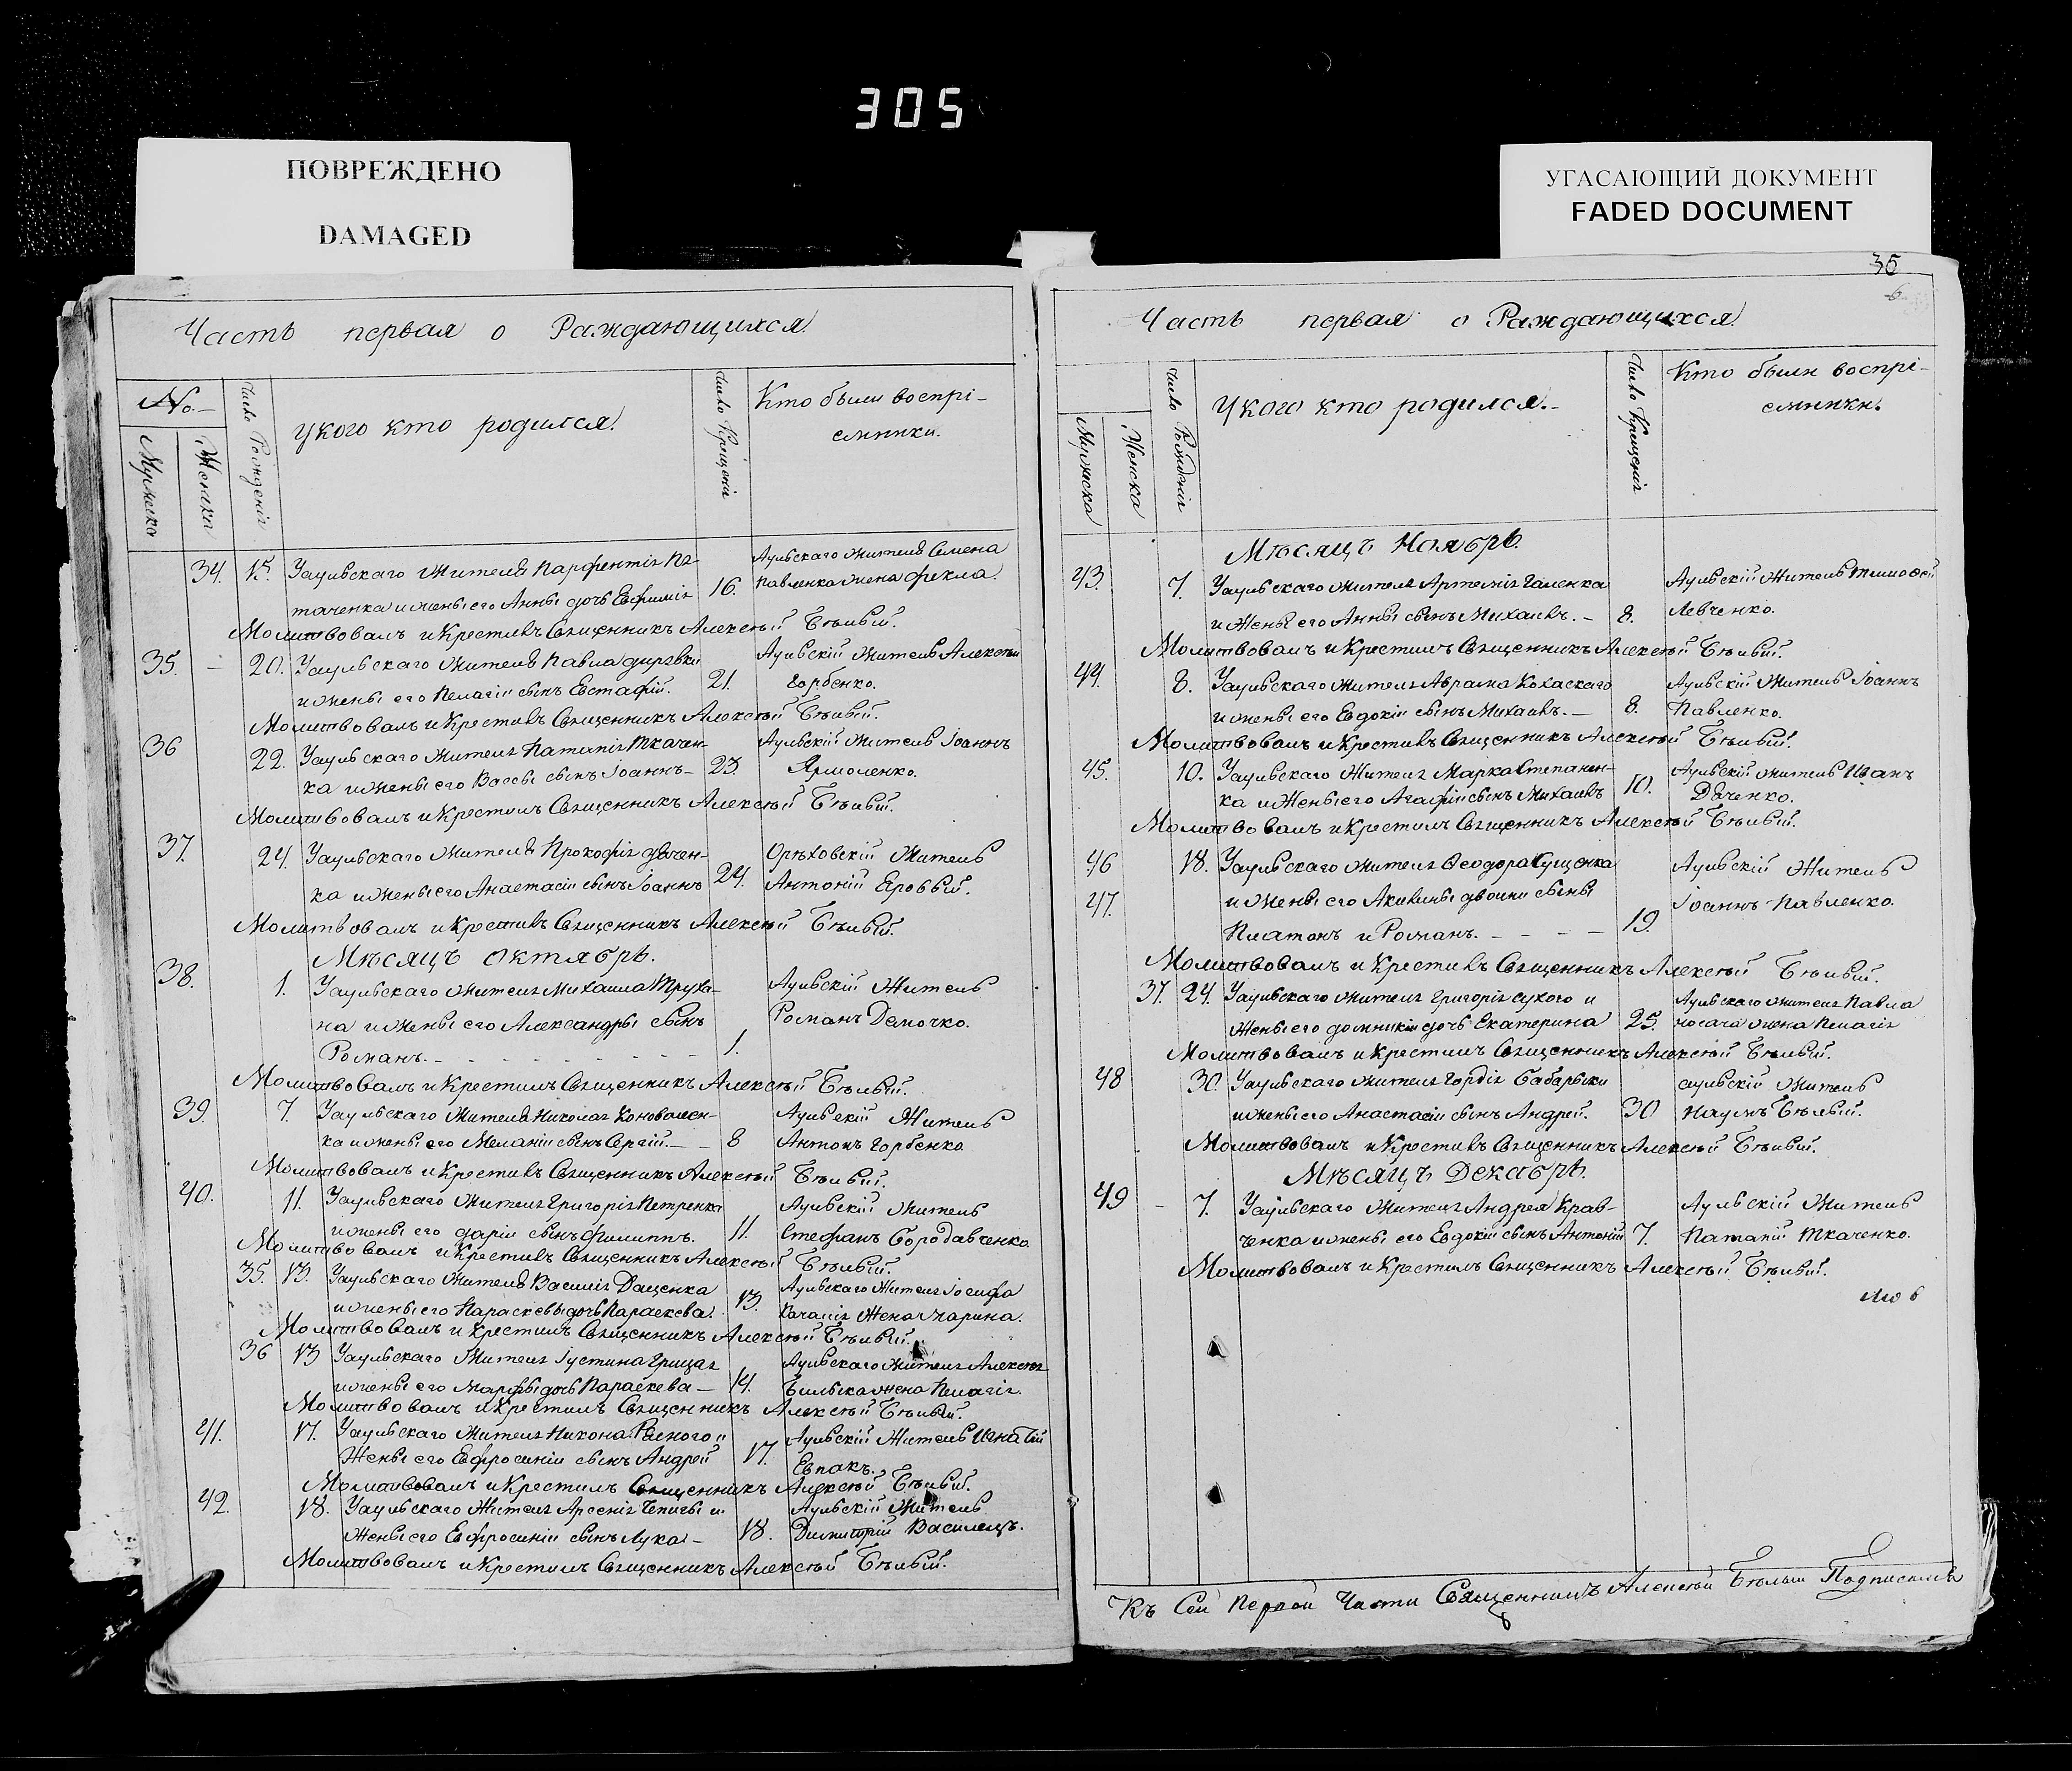 305
ПОВРЕЖДЕНО
DAMAGED
УГАСАЮЩИЙ ДОКУМЕНТ
FADED DOCUMENT
Часть первая о Раждающихся.
No.
Мужеска
Женска
Число Рождения
У кого кто родился.
Число Крещения
Кто были воспрі-
емники.
34. 15. У аульскаго жителя Парфентія Па-
таченка и жены его Анны дочь Евфимія 16.
Аульскаго жителя Семена
Павленка жена Фекла.
Молитвовалъ и Крестилъ Священникъ Алексѣй Бѣлый.
35. 20. У аульскаго жителя Павла
и жены его Пелагіи сынъ Евстафій. 21.
Аульскій житель Алексѣй
Горбенко.
Молитвовалъ и Крестилъ Священникъ Алексѣй Бѣлый.
36 22. У аульскаго жителя Патапія Ткачен-
ка и жены его Вассы сынъ Іоаннъ 23.
Аульскій житель Іоаннъ
Ярмоленко.
Молитвовалъ и Крестилъ Священникъ Алексѣй Бѣлый.
37. 24. У аульскаго жителя Прокофія Дячен-
ка и жены его Анастасіи сынъ Іоаннъ 24.
Орѣховскій житель
Антоній Яровый.
Молитвовалъ и Крестилъ Священникъ Алексѣй Бѣлый.
Мѣсяцъ Октябрь.
38. 1. У аульскаго жителя Михаила Труха-
на и жены его Александры сынъ
Романъ. 1.
Аульскій житель
Романъ Демочко.
Молитвовалъ и Крестилъ Священникъ Алексѣй Бѣлый.
39. 7. У аульскаго жителя Николая Коновален-
ка и жены его Меланіи сынъ Сергій. 8
Аульскій житель
Антонъ Горбенко
Молитвовалъ и Крестилъ Священникъ Алексѣй Бѣлый.
40. 11. У аульскаго жителя Григорія Петренка
и жены его Даріи сынъ Филиппъ. 11.
Аульскій житель
Стефанъ Бородавченко.
Молитвовалъ и Крестилъ Священникъ Алексѣй Бѣлый.
35. 13. У аульскаго жителя Василія Даценка
и жены его Параскевы дочь Параскева. 13.
Аульскаго жителя Іосифа
жена Марина.
Молитвовалъ и Крестилъ Священникъ Алексѣй Бѣлый.
36 13 У аульскаго жителя Іустина Грицая
и жены его Марфы дочь Параскева 14.
Аульскаго жителя Алексѣя
жена Пелагія.
Молитвовалъ и Крестилъ Священникъ Алексѣй Бѣлый.
41. 17. У аульскаго жителя Никона Рясного и
жены его Евфросиніи сынъ Андрей 17.
Аульскій житель Игнатій
Евпакъ.
Молитвовалъ и Крестилъ Священникъ Алексѣй Бѣлый.
42. 18. У аульскаго жителя Арсенія Чепиги и
жены его Евфросиніи сынъ Лука 18.
Аульскій житель
Димитрій Василецъ.
Молитвовалъ и Крестилъ Священникъ Алексѣй Бѣлый.
35
6
Часть первая о Раждающихся.
Мужеска
Женска
Число Рожденія
У кого кто родился.
Число Крещенія
Кто были воспрі-
емники.
Мѣсяцъ Ноябрь.
43. 7. У аульскаго жителя Артемія Галенка
и жены его Анны сынъ Михаилъ. 8.
Аульскій житель Тимофей
Левченко.
Молитвовалъ и Крестилъ Священникъ Алексѣй Бѣлый.
44. 8. У аульскаго жителя Аврама Кохаскаго
и жены его Евдокіи сынъ Михаилъ. 8.
Аульскій житель Іоаннъ
Павленко.
Молитвовалъ и Крестилъ Священникъ Алексѣй Бѣлый.
45. 10. У аульскаго жителя Марка Степанен-
ка и жены его Агафіи сынъ Михаилъ 10.
Аульскій житель Иванъ
Дяченко.
Молитвовалъ и Крестилъ Священникъ Алексѣй Бѣлый.
46 18. У аульскаго жителя Ѳеодора Куценка
47. и жены его Акилины двойни сыны
Платонъ и Романъ. 19.
Аульскій житель
Іоаннъ Павленко.
Молитвовалъ и Крестилъ Священникъ Алексѣй Бѣлый.
37. 24. У аульскаго жителя Григорія Сухого и
жены его Домникіи дочь Екатерина 25.
Аульскаго жителя Павла
Носача жена Пелагія
Молитвовалъ и Крестилъ Священникъ Алексѣй Бѣлый.
48 30. У аульскаго жителя Гордія Бабарыки
и жены его Анастасіи сынъ Андрей. 30
аульскій житель
Наумъ Бѣлый.
Молитвовалъ и Крестилъ Священникъ Алексѣй Бѣлый.
Мѣсяцъ Декабрь.
49 7. У аульскаго жителя Андрея Крав-
ченка и жены его Евдокіи сынъ Антоній 7.
Аульскій житель
Патапій Ткаченко.
Молитвовалъ и Крестилъ Священникъ Алексѣй Бѣлый.
Къ Сей Первой Части Священникъ Алексѣй Бѣлый Подписался